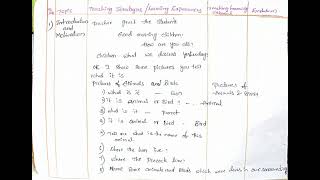 Topic Teaching Strategies / Learning Experiences Teaching Learning Evaluation
1) Introduction Teacher greet the students
and Good morning children.
Motivation How are you all?
children what we discuss yesterday
OK I show some pictures you tell
what it is
Pictures of Animals and Birds Pictures of
1) What is it - Animals & Birds
2) It is animal or Bird? - Animal
3) What is it - Parrot
4) It is animal or Bird - Bird
5) Tell me what is the name of this
animal
6) Where the lion live?
7) Where the Peacock live?
8) Name some animals and Birds which were lives in our surrounding